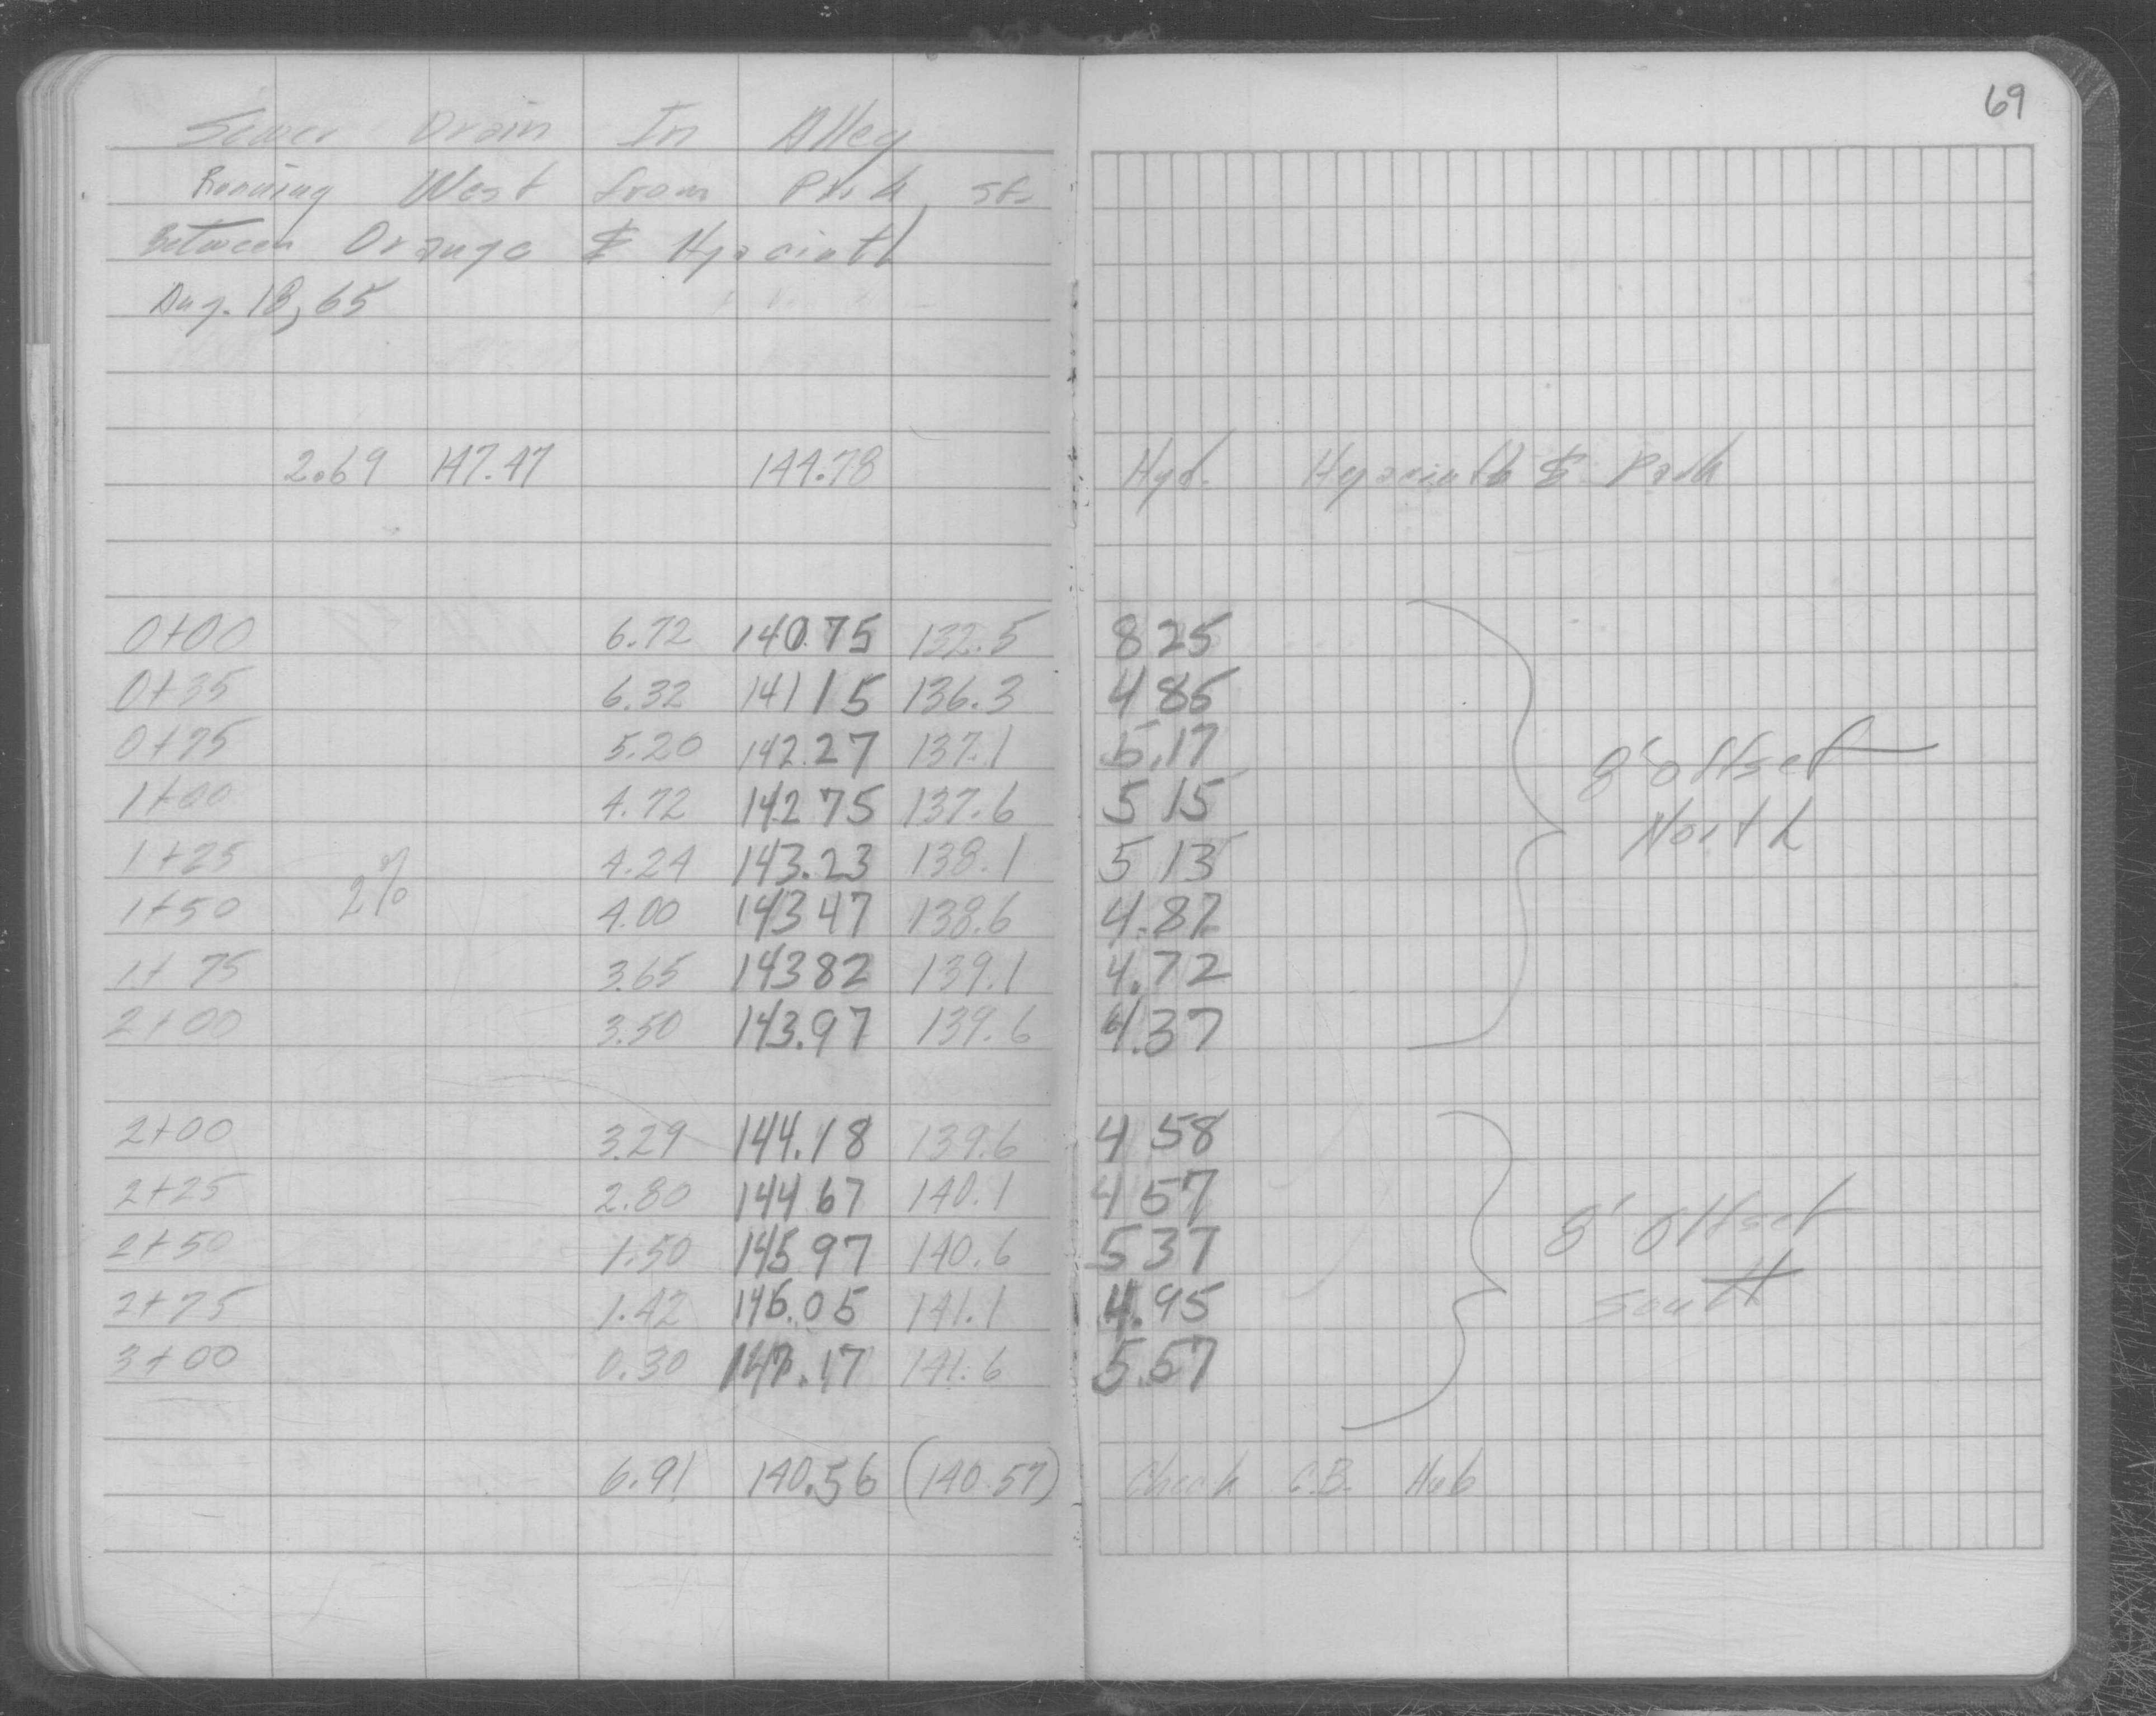 69
Sewer Drain In Alley
Running West from Park St.
Between Orange & Hyacinth
Aug. 18, 65
2.69 147.47 144.78 Hyd. Hyacinth & Park
0+00 6.72 140.75 132.5 8 25
0+35 6.32 141 15 136.3 4 85
0+75 5.20 142.27 137.1 5.17
1+00 4.72 142 75 137.6 5 15
8' offset
North
1+25 4.24 143.23 138.1 5 13
1+50 2% 4.00 143 47 138.6 4.87
1+75 3.65 143 82 139.1 4.72
2+00 3.50 143.97 139.6 4.37
2+00 3.29 144.18 139.6 4 58
2+25 2.80 144 67 140.1 4 57
2+50 1.50 145 97 140.6 5 37
8' Offset
South
2+75 1.42 146.05 141.1 4.95
3+00 0.30 147.17 141.6 5.57
6.91 140.56 (140.57) Check C.B. Hub